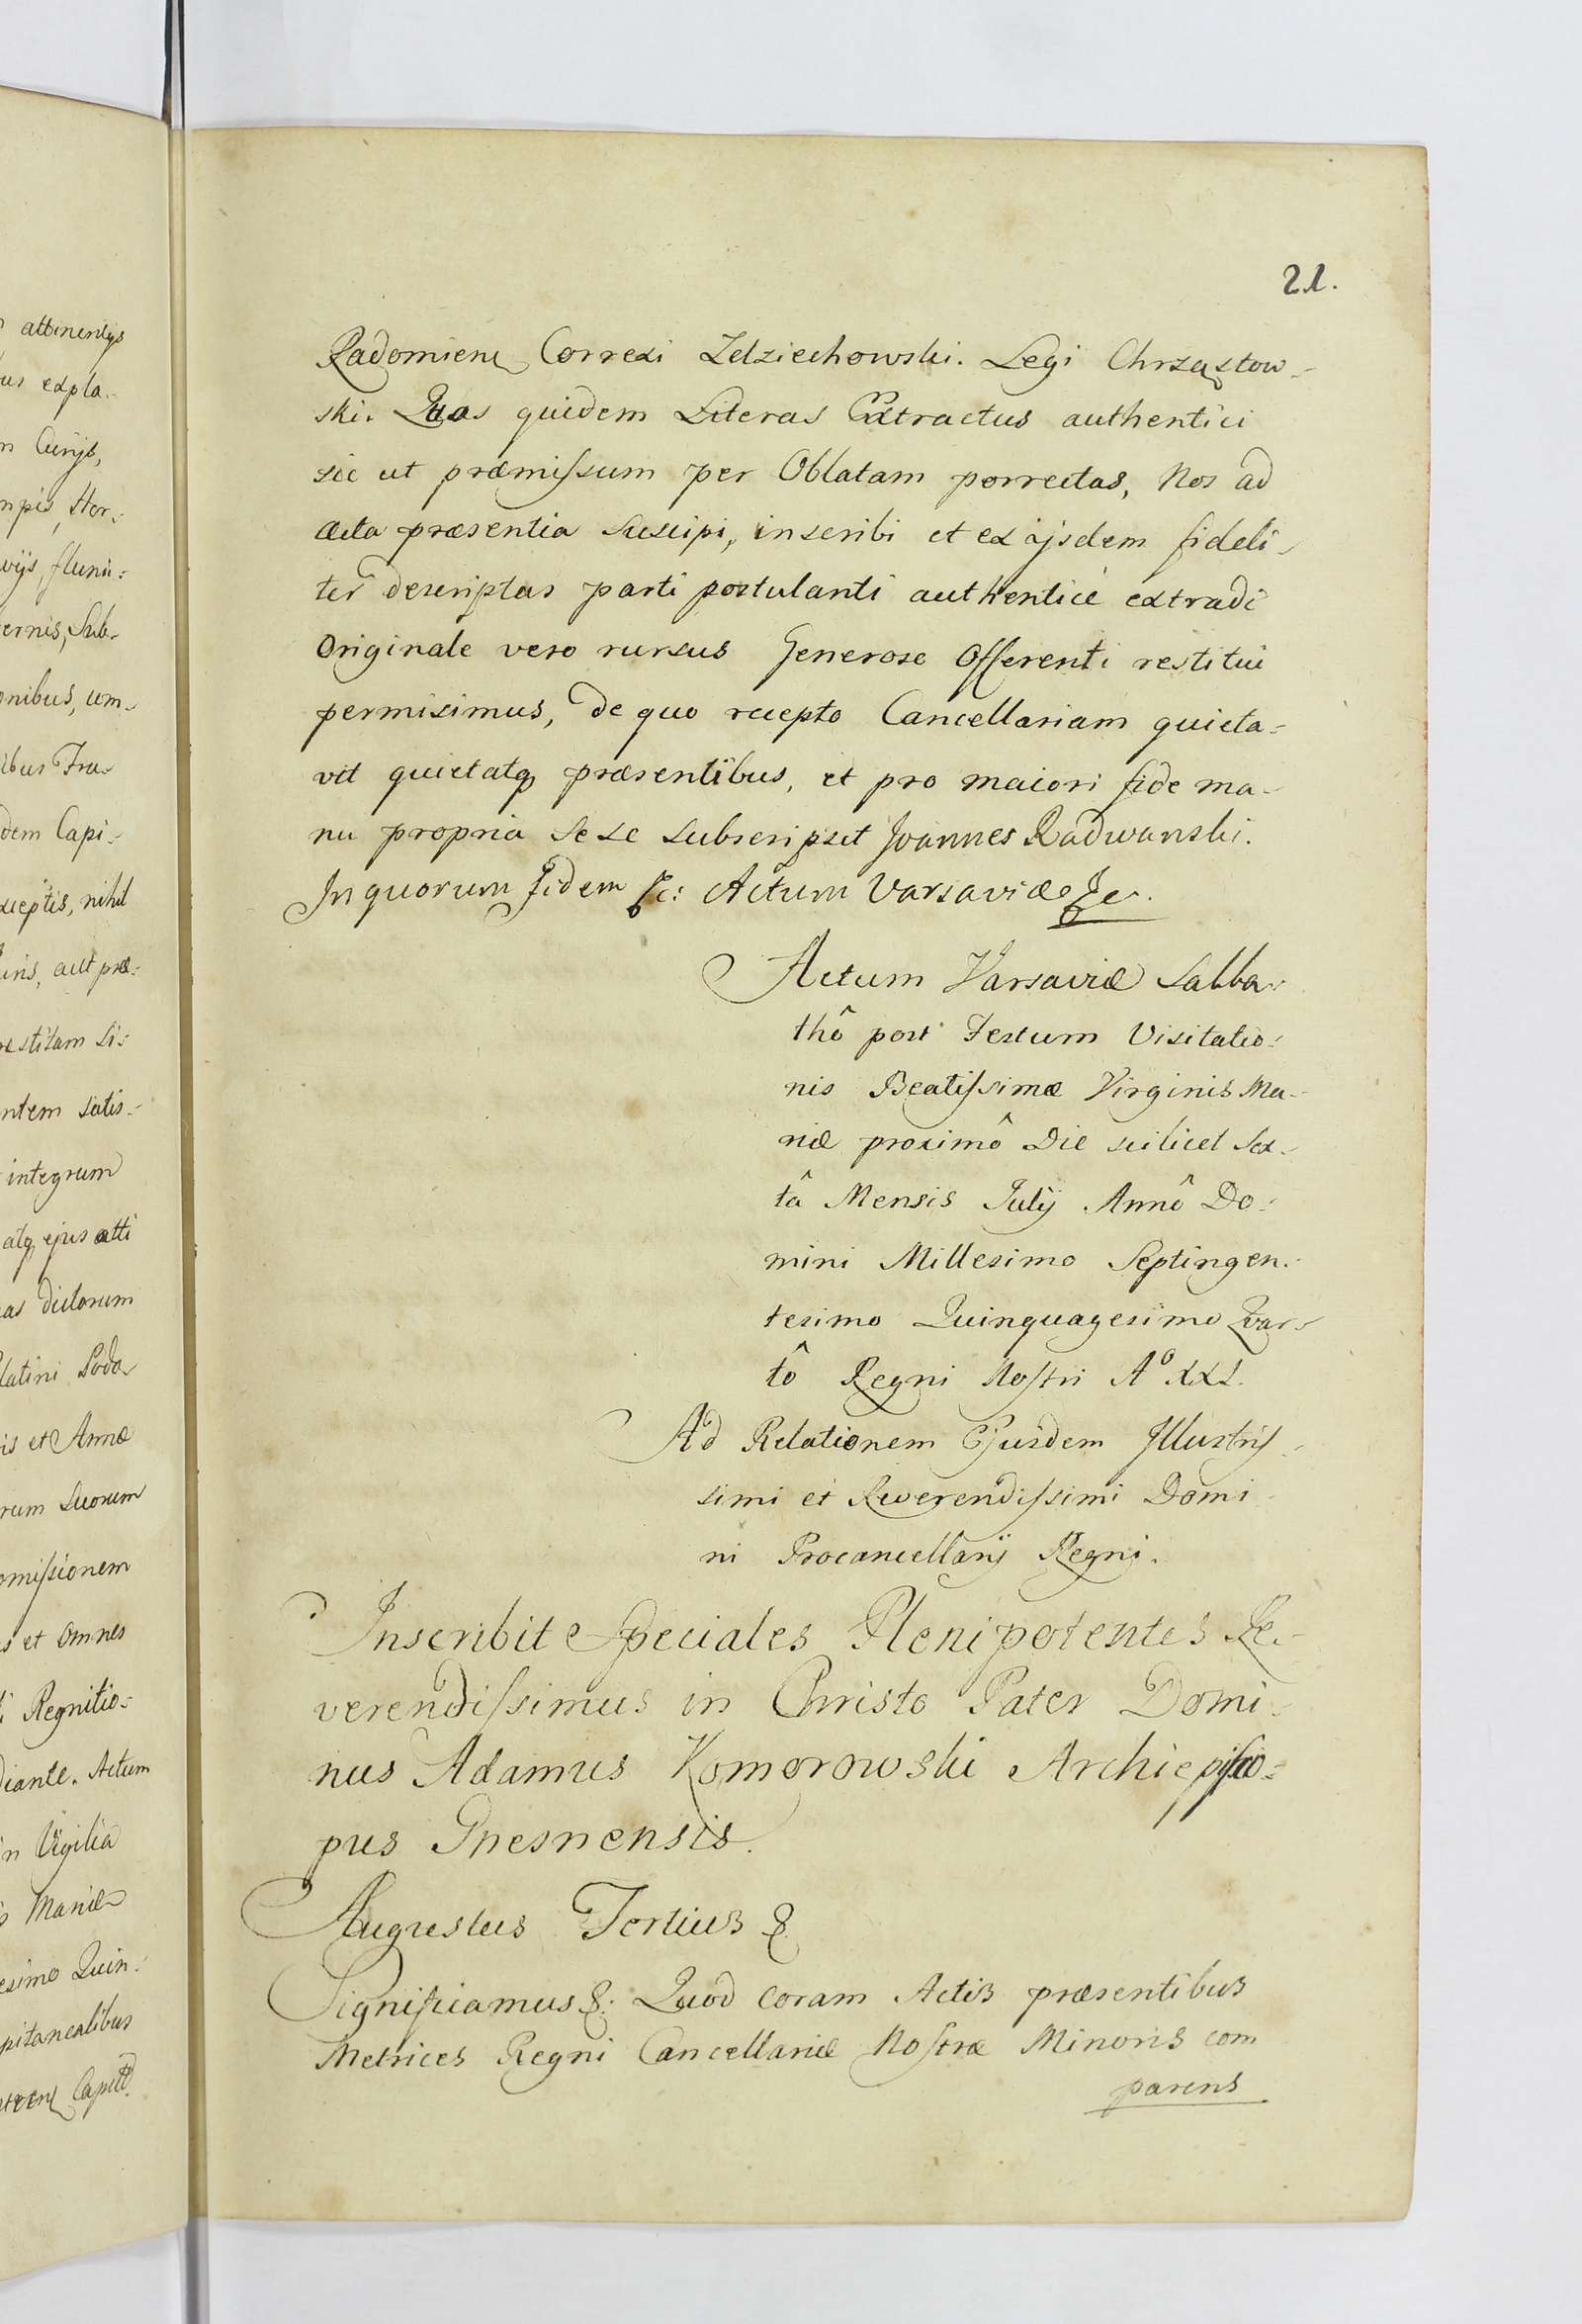 attinentijs
us expla-
n Curijs,
mpis, Hor-
vijs, flumi:
ernis, Sub-
onibus, um-
ibus Fru-
dem Capi-
xceptis, nihil
uris, aut præ:
restitam si:
ntem satis-
integrum
atq ejus atti
as dictorum
latini Podo-
is et Annæ
rum Suorum
omiſsionem
s et omnes
Regnitio:
diante. Actum
in Vigilia
s Mariæ
esimo Quin:
pitanealibus
Capitt.
21.
Radomiens Correxi Zelziechowski. Legi Chrząstow-
ski. Quas quidem Literas Extractus authentici
sic ut præmiſsum per Oblatam porrectas, Nos ad
acta præsentia Suscipi, inscribi et ex ijsdem fideli-
ter descriptas parti postulanti authenticè extradi
Originale vero rursus Generose Offerenti restitui
permisimus, de quo recepto Cancellariam quieta-
vit quietatq præsentibus, et pro maiori fide ma-
nu propria Se se subscripsit Joannes Radwanski.
In quorum Fidem &c: Actum Varsaviæ &c.
Actum Varsaviæ Sabba-
thô post Festum Visitatio-
nis Beatiſsimæ Virginis Ma-
riæ proximô Die scilicet Sex-
tâ Mensis Julij Annô Do-
mini Millesimo Septingen-
tesimo Quinquagesimo Quar-
tô Regni Noſtri Aº XXI.
Ad Relationem Ejusdem Illustriſ-
simi et Reverendiſsimi Domi-
ni Procancellarij Regni.
Inscribit Speciales Plenipotentes Re-
verendiſsimus in Christo Pater Domi-
nus Adamus Komorowski Archiepiſco-
pus Gnesnensis.
Augustus Tertius &
Significamus &: Quod coram Actis præsentibus
Metrices Regni Cancellariæ Noſtræ Minoris com
parens